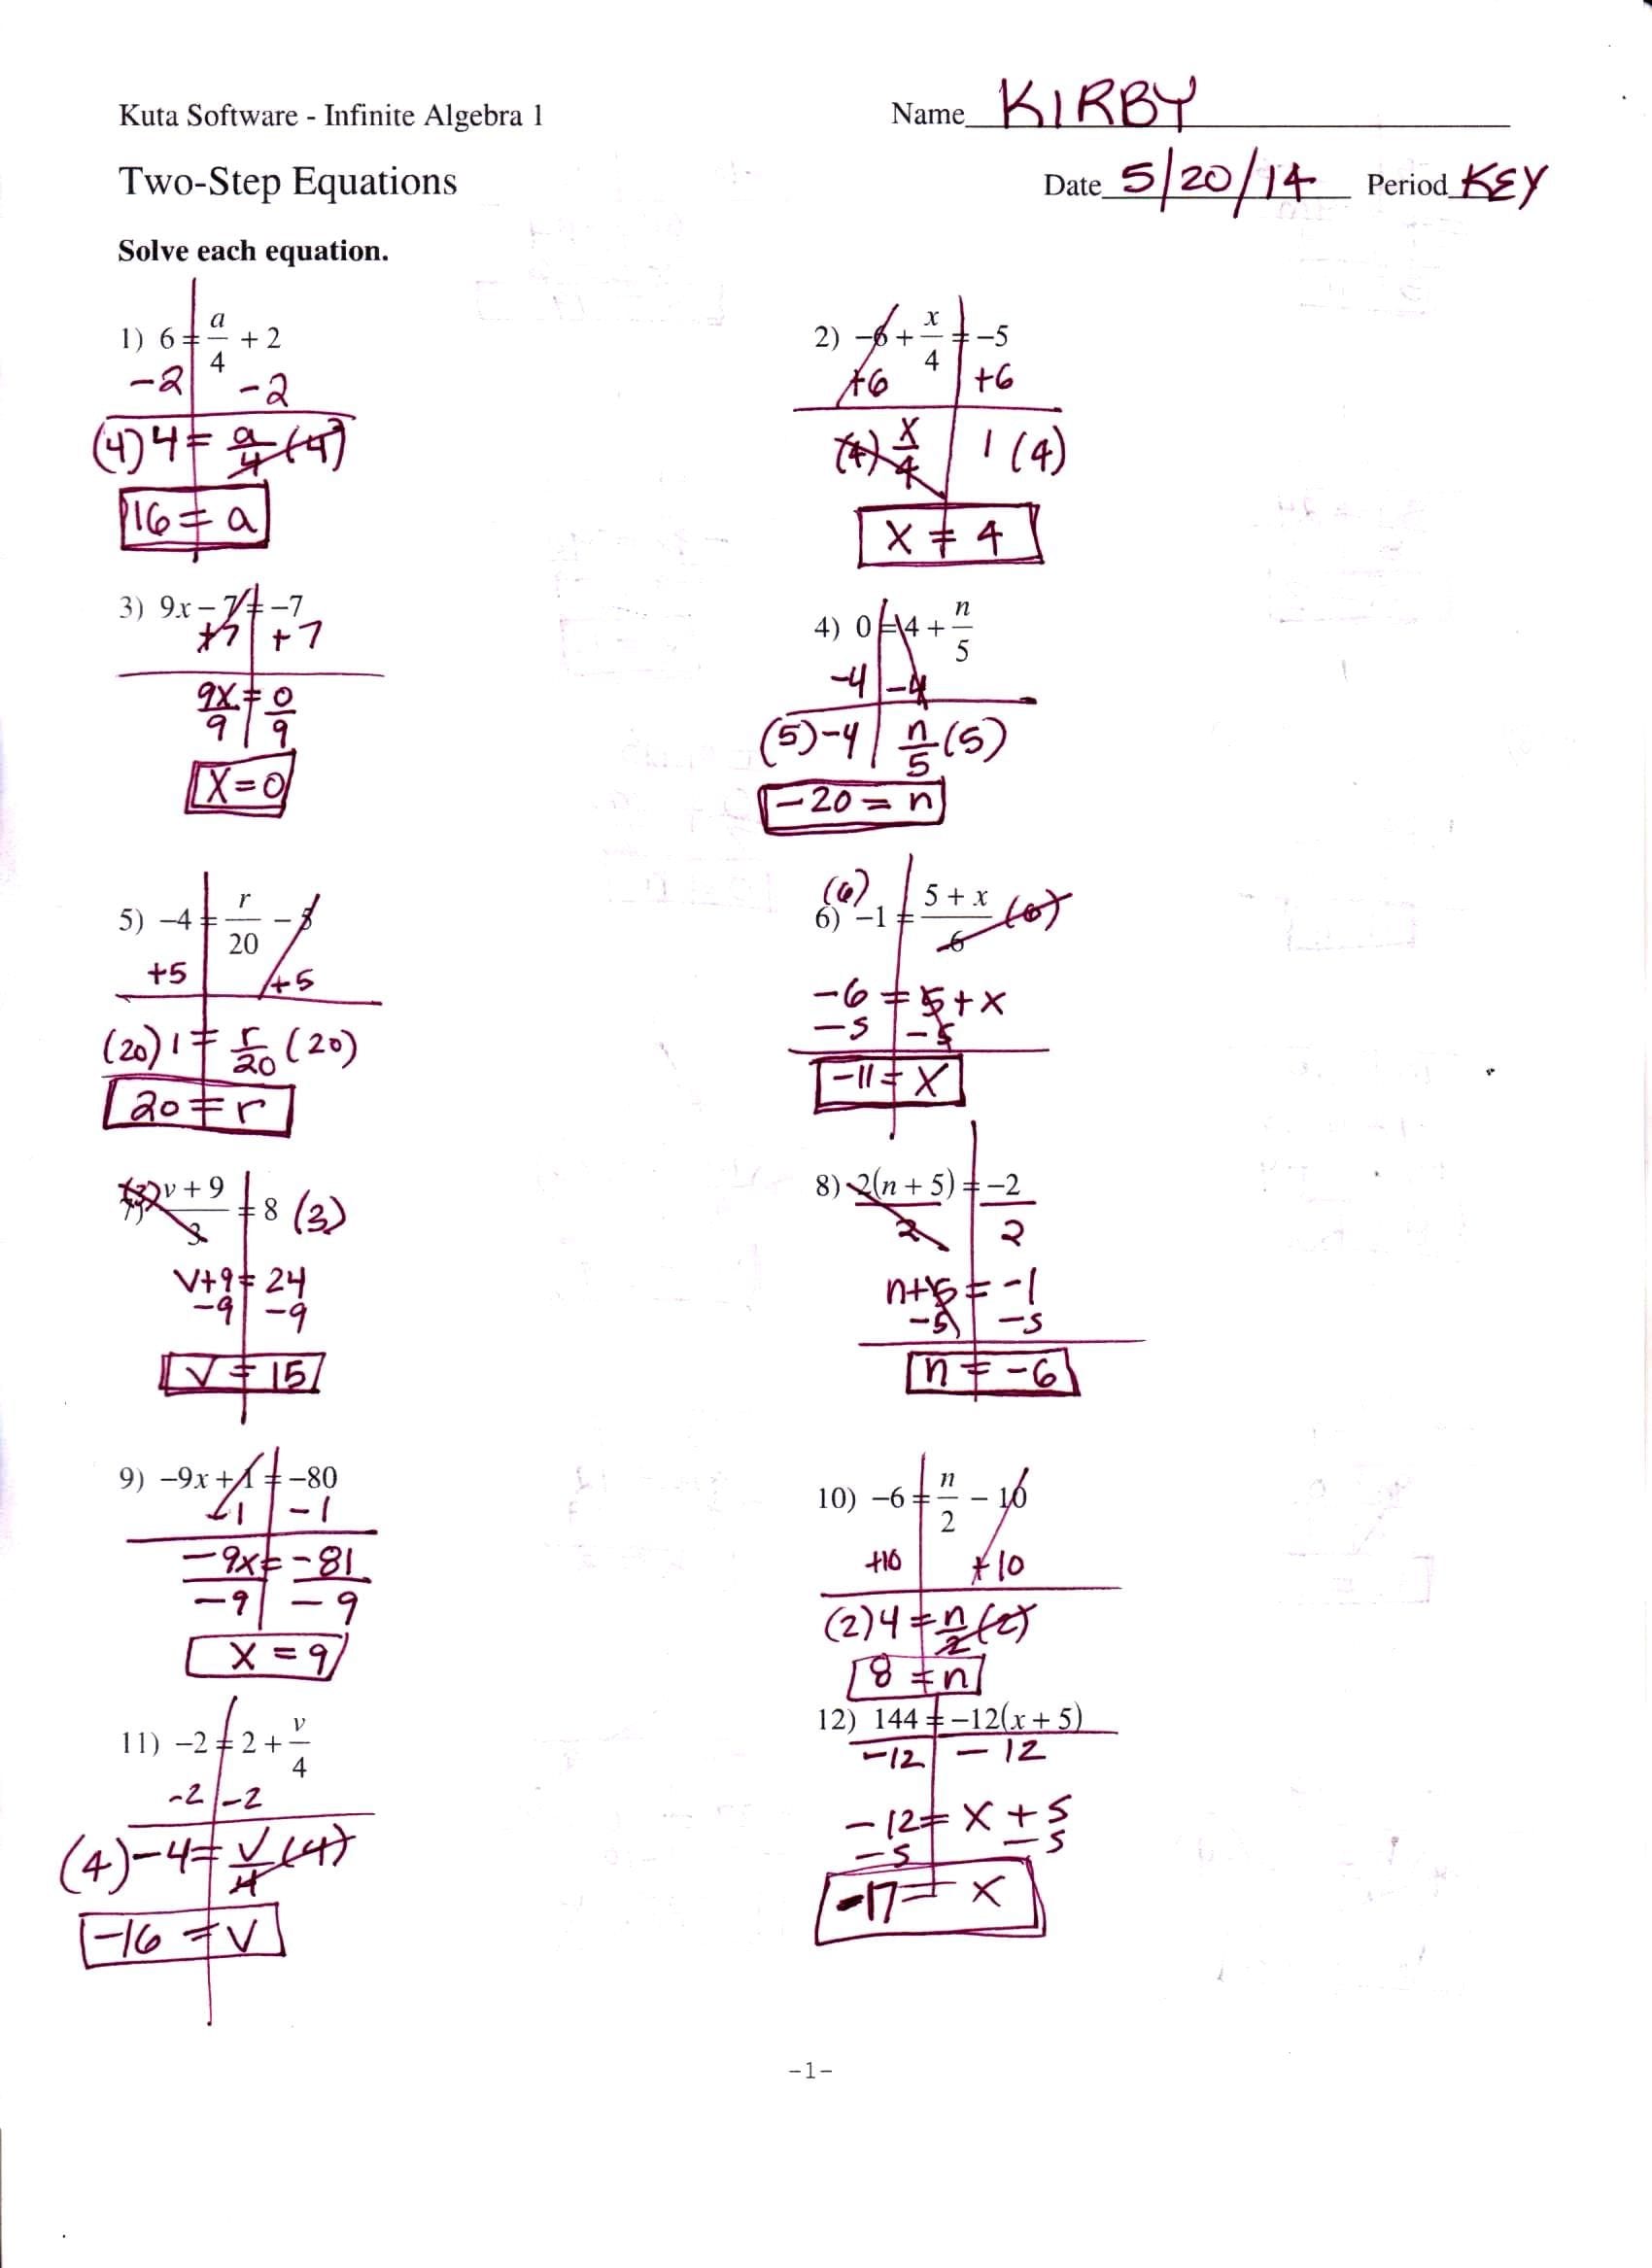 Kuta Software - Infinite Algebra 1
Name KIRBY
Two-Step Equations
Date 5/20/14 Period KEY
Solve each equation.
1) 6 = a/4 + 2
-2 -2
(4) 4 = a/4 (4)
16 = a
2) -6 + x/4 = -5
+6 +6
(4) x/4 1 (4)
x = 4
3) 9x - 7 = -7
+7 +7
9x/9 = 0/9
x = 0
4) 0 = 4 + n/5
-4 -4
(5) -4 n/5 (5)
-20 = n
5) -4 = r/20 - 5
+5 +5
(20) 1 = r/20 (20)
20 = r
(6) 6) -1 = (5 + x)/6 (6)
-6 = 5 + x
-5 -5
-11 = x
(3) 7) (v + 9)/3 = 8 (3)
v+9 = 24
-9 -9
v = 15
8) 2(n + 5)/2 = -2/2
n+5 = -1
-5 -5
n = -6
9) -9x + 1 = -80
-1 -1
-9x/-9 = -81/-9
x = 9
10) -6 = n/2 - 10
+10 +10
(2) 4 = n/2 (2)
8 = n
11) -2 = 2 + v/4
-2 -2
(4) -4 = v/4 (4)
-16 = v
12) 144/-12 = -12(x + 5)/-12
-12 = x + 5
-5 -5
-17 = x
-1-